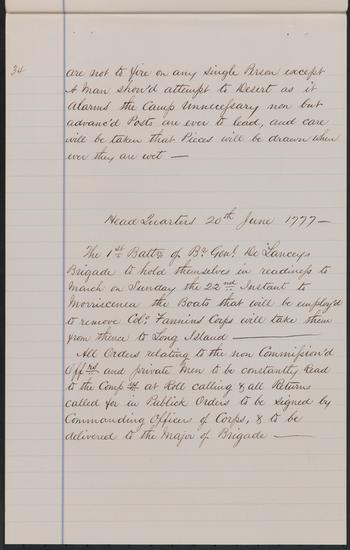 34
are not to fire on any single Person except
A Man shou'd attempt to Desert as it
Alarms the Camp Unnecessary non but
advanc'd Posts are ever to load, and care
will be taken that Pieces will be drawn when
ever they are wet —
Head Quarters 20th June 1777—
The 1st Battn of Br Genl. De Lanceys
Brigade to hold themselves in readiness to
March on Sunday the 22nd Instant to
Morriscenea the Boats that will be employ'd
to remove Colo. Fannins Corps will take them
from thence to Long Island —
All Orders relating to the non Commission'd
Offrs and private Men to be constantly Read
to the Compys at Roll calling & all Returns
called for in Publick Orders to be signed by
Commanding Officers of Corps, & to be
delivered to the Major of Brigade —